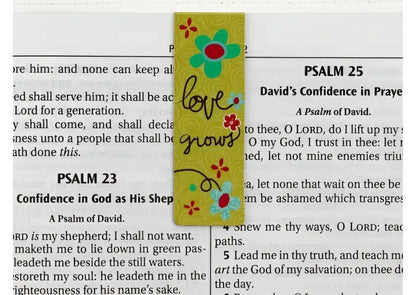 ore him: and none can keep al
ed shall serve him; it shall be ac
Lord for a generation.
y shall come, and shall decla
sness unto a people that shall b
ath done this.
PSALM 23
Confidence in God as His Shep
A Psalm of David.
ORD is my shepherd; I shall not want.
maketh me to lie down in green pas-
leadeth me beside the still waters.
estoreth my soul: he leadeth me in the
righteousness for his name's sake.
love
grows
PSALM 25
David's Confidence in Praye
A Psalm of David.
to thee, O LORD, do I lift up my s
O my God, I trust in thee: let
ned, let not mine enemies triu
ea, let none that wait on thee be
em be ashamed which transgres
4 Shew me thy ways, O LORD; teac
paths.
5 Lead me in thy truth, and teach me
art the God of my salvation; on thee do
the day.